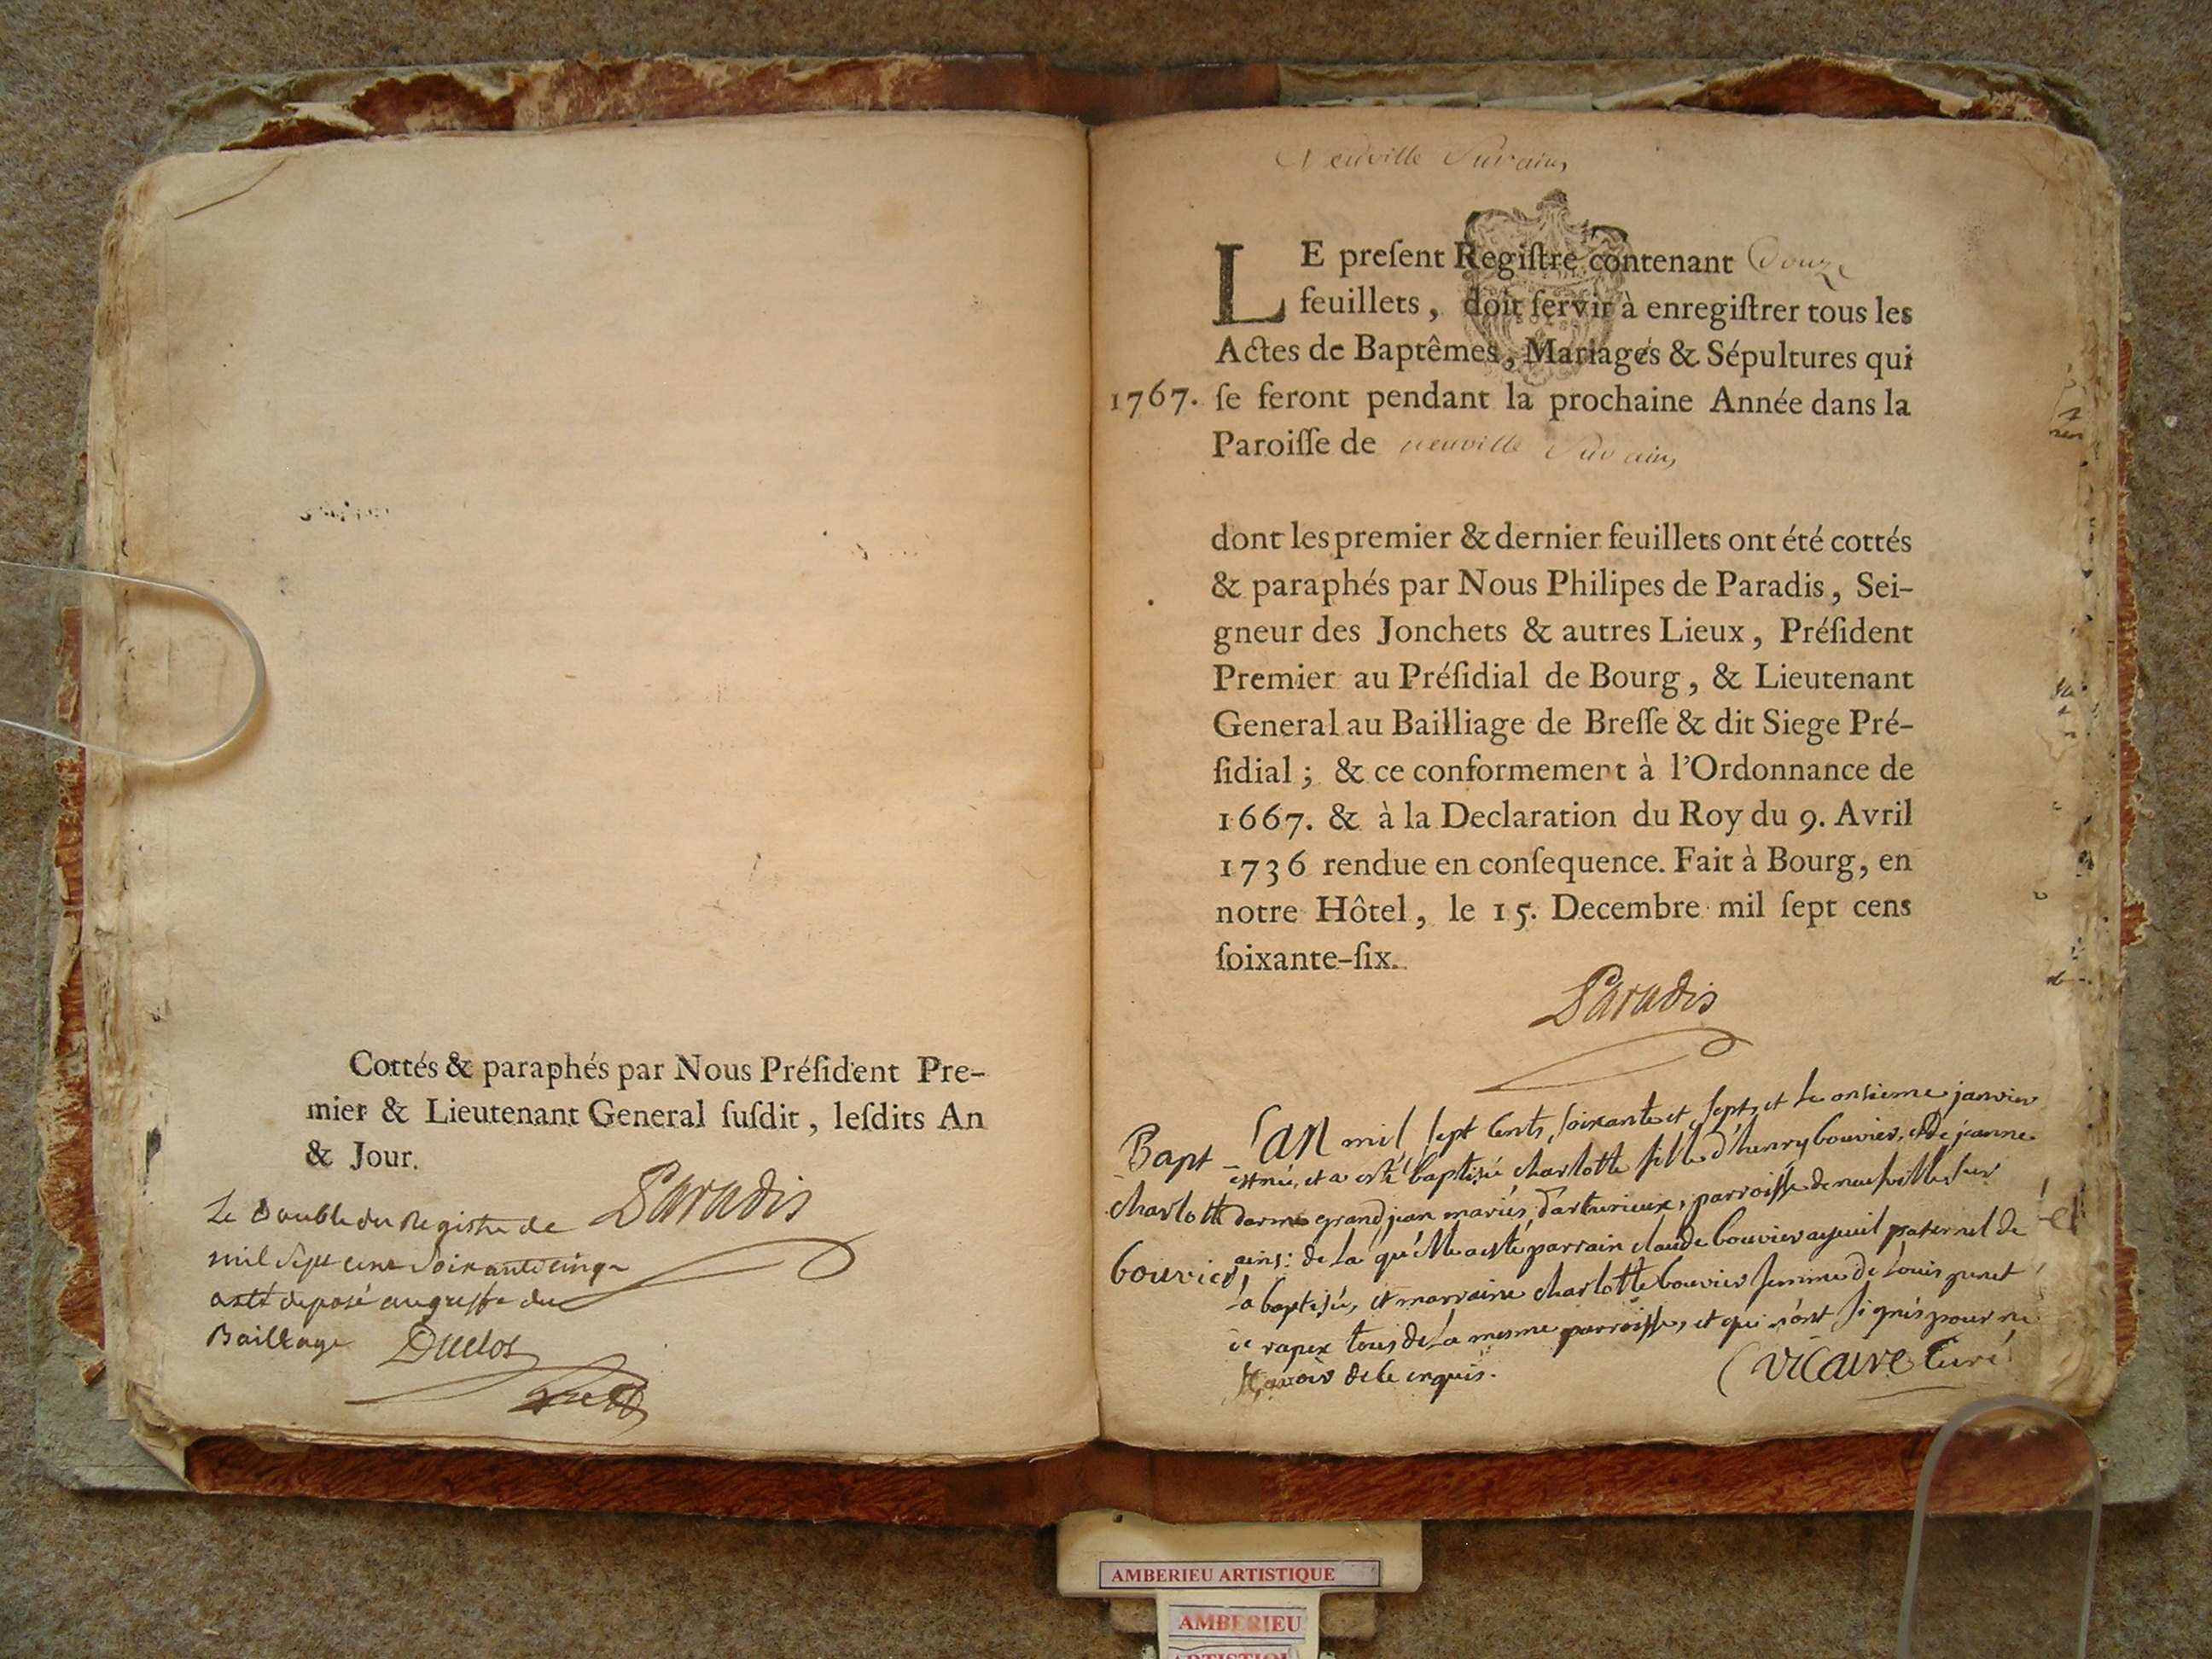 Cottés & paraphés par Nous Préſident Pre-
mier & Lieutenant General ſuſdit, leſdits An
& Jour.
Paradis
Le Double du Registre de
mil Sept cent Soixante cinq
a esté deposé au greffe du
Baillage Duclos
Neuville Sur ains
LE preſent Regiſtre contenant Douze
feuillets, doit ſervir à enregiſtrer tous les
Actes de Baptêmes, Mariages & Sépultures qui
1767. ſe feront pendant la prochaine Année dans la
Paroiſſe de neuville Sur ains
dont les premier & dernier feuillets ont été cottés
& paraphés par Nous Philipes de Paradis, Sei-
gneur des Jonchets & autres Lieux, Préſident
Premier au Préſidial de Bourg, & Lieutenant
General au Bailliage de Breſſe & dit Siege Pré-
ſidial; & ce conformement à l'Ordonnance de
1667. & à la Declaration du Roy du 9. Avril
1736 rendue en conſequence. Fait à Bourg, en
notre Hôtel, le 15. Decembre mil ſept cens
ſoixante-ſix.
Paradis
Bapt - L'an mil sept cents soixante et sept, et le onsieme janvier
est née, et a esté baptisée charlotte fille d'henry bouvier, et de jeanne
charlotte darme grand jean mariés, parroisse de neufville sur
bouvier, ains: de la qu'elle a esté parrain claude bouvier ayeuil paternel de
la baptisée, et marraine charlotte bouvier femme de Louis
tous de La mesme parroisse, et qui n'ont signés pour ne
sçavoir de ce enquis.
Vicaire Curé
AMBERIEU ARTISTIQUE
AMBERIEU